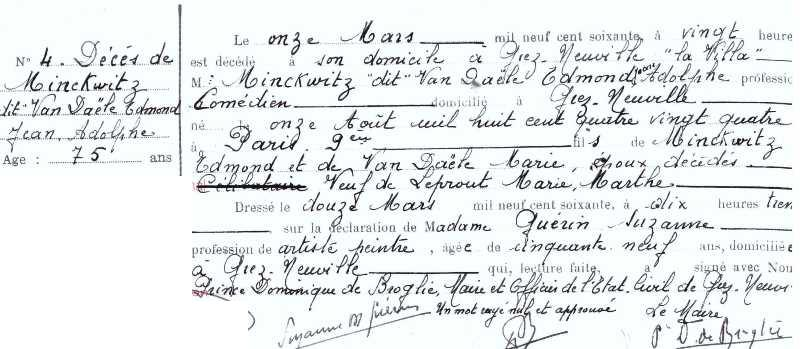 N° 4. Décés de
Minckwitz
dit "Van Daële Edmond
Jean, Adolphe
Age : 75 ans
Le onze Mars mil neuf cent soixante, à vingt heure
est décédé à son domicile à Grez-Neuville "la Villa"
M : Minckwitz "dit" Van Daële Edmond Jean Adolphe professio
Comédien domicilié à Grez-Neuville
né le onze Août mil huit cent quatre vingt quatre
à Paris 9em fils de Minckwitz
Edmond et de Van Daële Marie, époux décédés
Célibataire Veuf de Leprout Marie, Marthe
Dressé le douze Mars mil neuf cent soixante, à dix heures tren
sur la déclaration de Madame Guérin Suzanne
profession de artiste peintre, agée de cinquante neuf ans, domiciliée
à Grez-Neuville qui, lecture faite, a signé avec Nou
Prince Dominique de Broglie, Maire et Officier de l'Etat-Civil de Grez-Neuvi
Un mot rayé nul et approuvé Le Maire
Suzanne M Guérin
P D. de Broglie